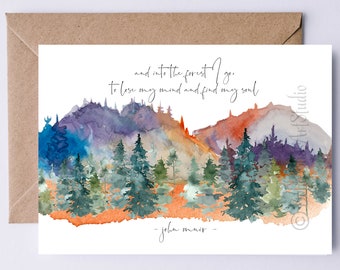 and into the forest I go,
to lose my mind and find my soul
- john muir -